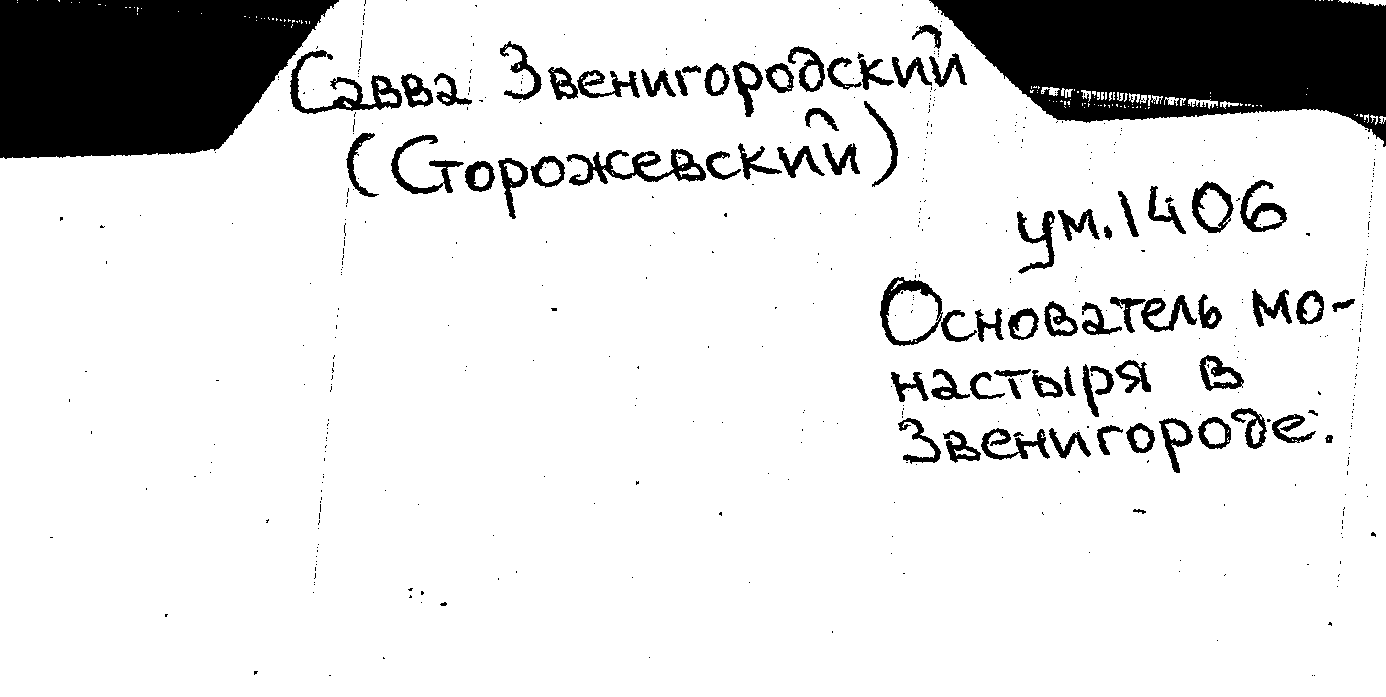 Савва Звенигородский
(Сторожевский)
ум. 1406
Основатель мо-
настыря в
Звенигороде.